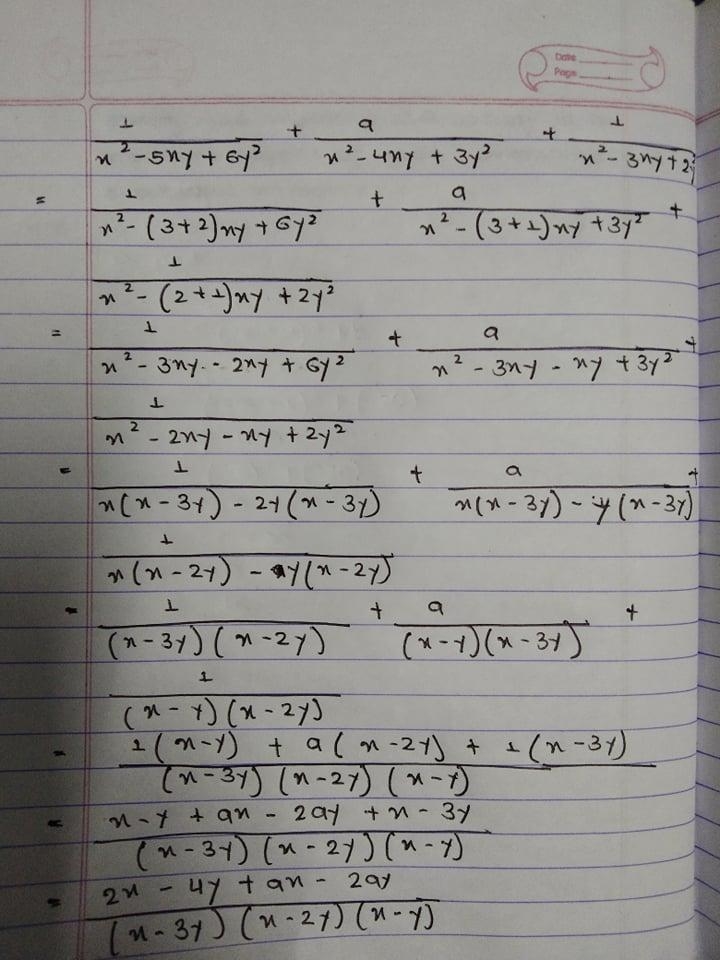 Date
Page
1/(x²-5xy + 6y²) + a/(x²-4xy + 3y²) + 1/(x²-3xy+2y
= 1/(x²-(3+2)xy+6y²) + a/(x²-(3+1)xy+3y²) +
1/(x²-(2+1)xy+2y²)
= 1/(x²-3xy-2xy+6y²) + a/(x²-3xy-xy+3y²) +
1/(x²-2xy-xy+2y²)
= 1/(x(x-3y)-2y(x-3y)) + a/(x(x-3y)-y(x-3y)) +
1/(x(x-2y)-y(x-2y))
= 1/((x-3y)(x-2y)) + a/((x-y)(x-3y)) +
1/((x-y)(x-2y))
= (1(x-y) + a(x-2y) + 1(x-3y))/((x-3y)(x-2y)(x-y))
= (x-y+ax-2ay+x-3y)/((x-3y)(x-2y)(x-y))
= (2x-4y+ax-2ay)/((x-3y)(x-2y)(x-y))